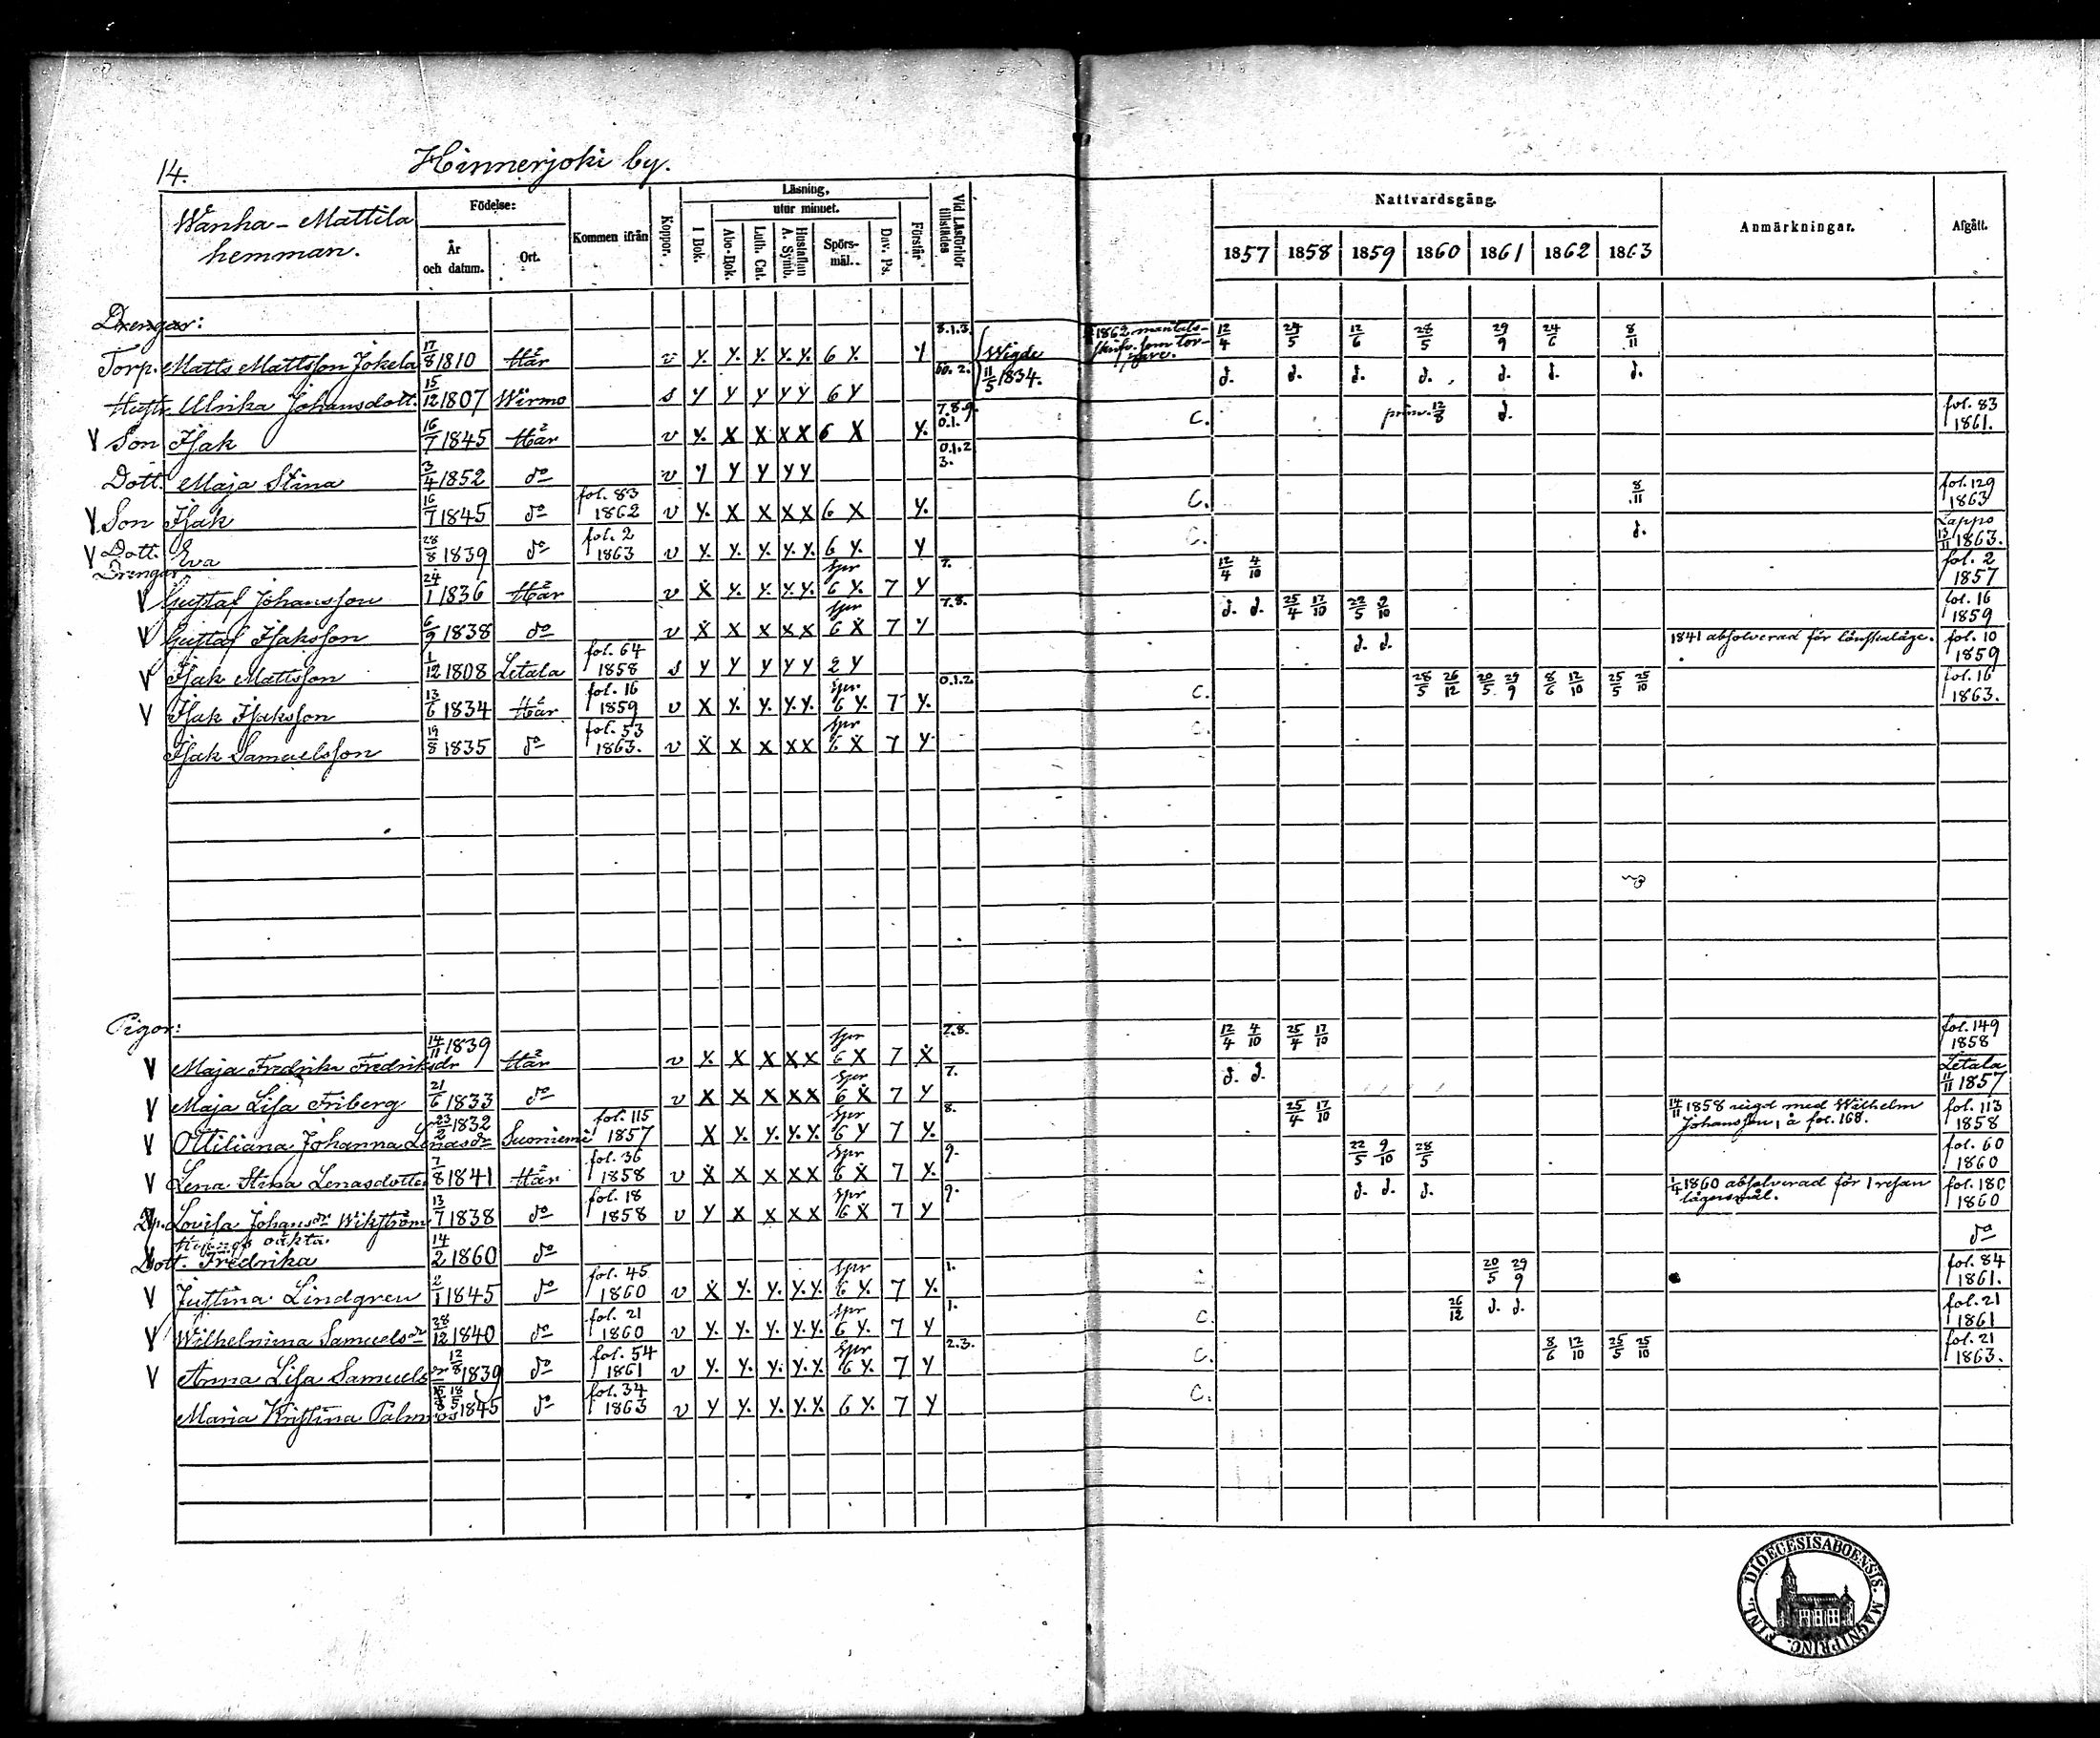 14. Hinnerjoki by.
Wanha-Mattila hemman.
Födelse:
År och datum.
Ort.
Kommen ifrån
Koppor.
Läsning,
I Bok.
utur minnet.
Abc-Bok.
Luth. Cat.
Hustaflan A. Symb.
Spörsmål.
Dav. Ps.
Förstår
Vid Läsförhör tillstädes
Nattvardsgång.
1857 1858 1859 1860 1861 1862 1863
Anmärkningar.
Afgått.
Drengar:
Torp. Matts Mattsson Jokela 17/8 1810 Här v y. y. y. y. y. 6 y. y 8.1.3. Wigde 11/5 1834. 1862 mantals- 12/4 24/5 12/6 28/5 29/9 24/6 8/11
Hustr. Ulrika Johansdott. 15/12 1807 Wirmo s y y y y y 6 y 60. 2. d. d. d. d. d. d. d.
V Son Isak 16/7 1845 Här v y. x x x x 6 x y. 7.8.9. 0.1. C. 12/8 d. fol. 83 1861.
Dott. Maja Stina 3/4 1852 do v y y y y y 0.1.2 3.
V Son Isak 16/7 1845 do fol. 83 1862 v y. x x x x 6 x y. C. 8/11 fol. 129 1863
V Dott. Eva 28/8 1839 do fol. 2 1863 v y. y. y. y. y. 6 y. y C. d. Lappo 13/11 1863.
Drengar
V Gustaf Johansson 24/1 1836 Här v x y. y. y. y. spr 6 y. 7 y 7. 12/4 4/10 fol. 2 1857
V Gustaf Isaksson 6/9 1838 do v x x x x x spr 6 x 7 y 7.8. d. d. 25/4 17/10 22/5 9/10 fol. 16 1859
V Isak Mattsson 1/12 1808 Letala fol. 64 1858 s y y y y y 2 y d. d. 1841 absolverad för lönskaläge. fol. 10 1859
V Isak Isaksson 13/6 1834 Här fol. 16 1859 v x y. y. y. y. spr 6 y. 7 y. 0.1.2. C. 28/5 26/12 20/5 29/9 8/6 12/10 25/5 25/10 fol. 16 1863.
Isak Samuelsson 19/8 1835 do fol. 53 1863. v x x x x x spr 6 x 7 y C.
Pigor:
V Maja Fredrika Fredriksdr 14/11 1839 Här v x x x x x spr 6 x 7 x 7.8. 12/4 4/10 25/4 17/10 fol. 149 1858
V Maja Lisa Friberg 21/6 1833 do v x x x x x spr 6 x 7 y 7. d. d. Letala 11/11 1857
V Ottiliana Johanna Lenasdr 23/2 1832 Suoniemi fol. 115 1857 x y. y. y. y. spr 6 y 7 y. 8. 25/4 17/10 14/11 1858 vigd med Wilhelm Johansson, å fol. 168. fol. 113 1858
V Lena Stina Lenasdotter 7/8 1841 Här fol. 36 1858 v x x x x x spr 6 x 7 y. 9. 22/5 9/10 28/5 fol. 60 1860
Lovisa Johansdr Wikström 13/7 1838 do fol. 18 1858 v y x x x x spr 6 x 7 y 9. d. d. d. 1/4 1860 absolverad för I resan lägersmål. fol. 180 1860
Dott. Fredrika 14/2 1860 do do
V Justina Lindgren 2/1 1845 do fol. 45 1860 v x y. y. y. y. spr 6 y. 7 y. 1. 20/5 29/9 fol. 84 1861.
V Wilhelmina Samuelsdr 28/12 1840 do fol. 21 1860 v y. y. y. y. y. spr 6 y. 7 y 1. C. 26/12 d. d. fol. 21 1861
V Anna Lisa Samuelsdr 12/8 1839 do fol. 54 1861 v y. y. y. y. y. spr 6 y. 7 y 2.3. C. 8/6 12/10 25/5 25/10 fol. 21 1863.
Maria Kristina Palmroos 18/5 1845 do fol. 34 1863 v y y. y. y. y. 6 y. 7 y C.
DIOECESIS ABOENSIS. MAGNI PRINC. FINL.